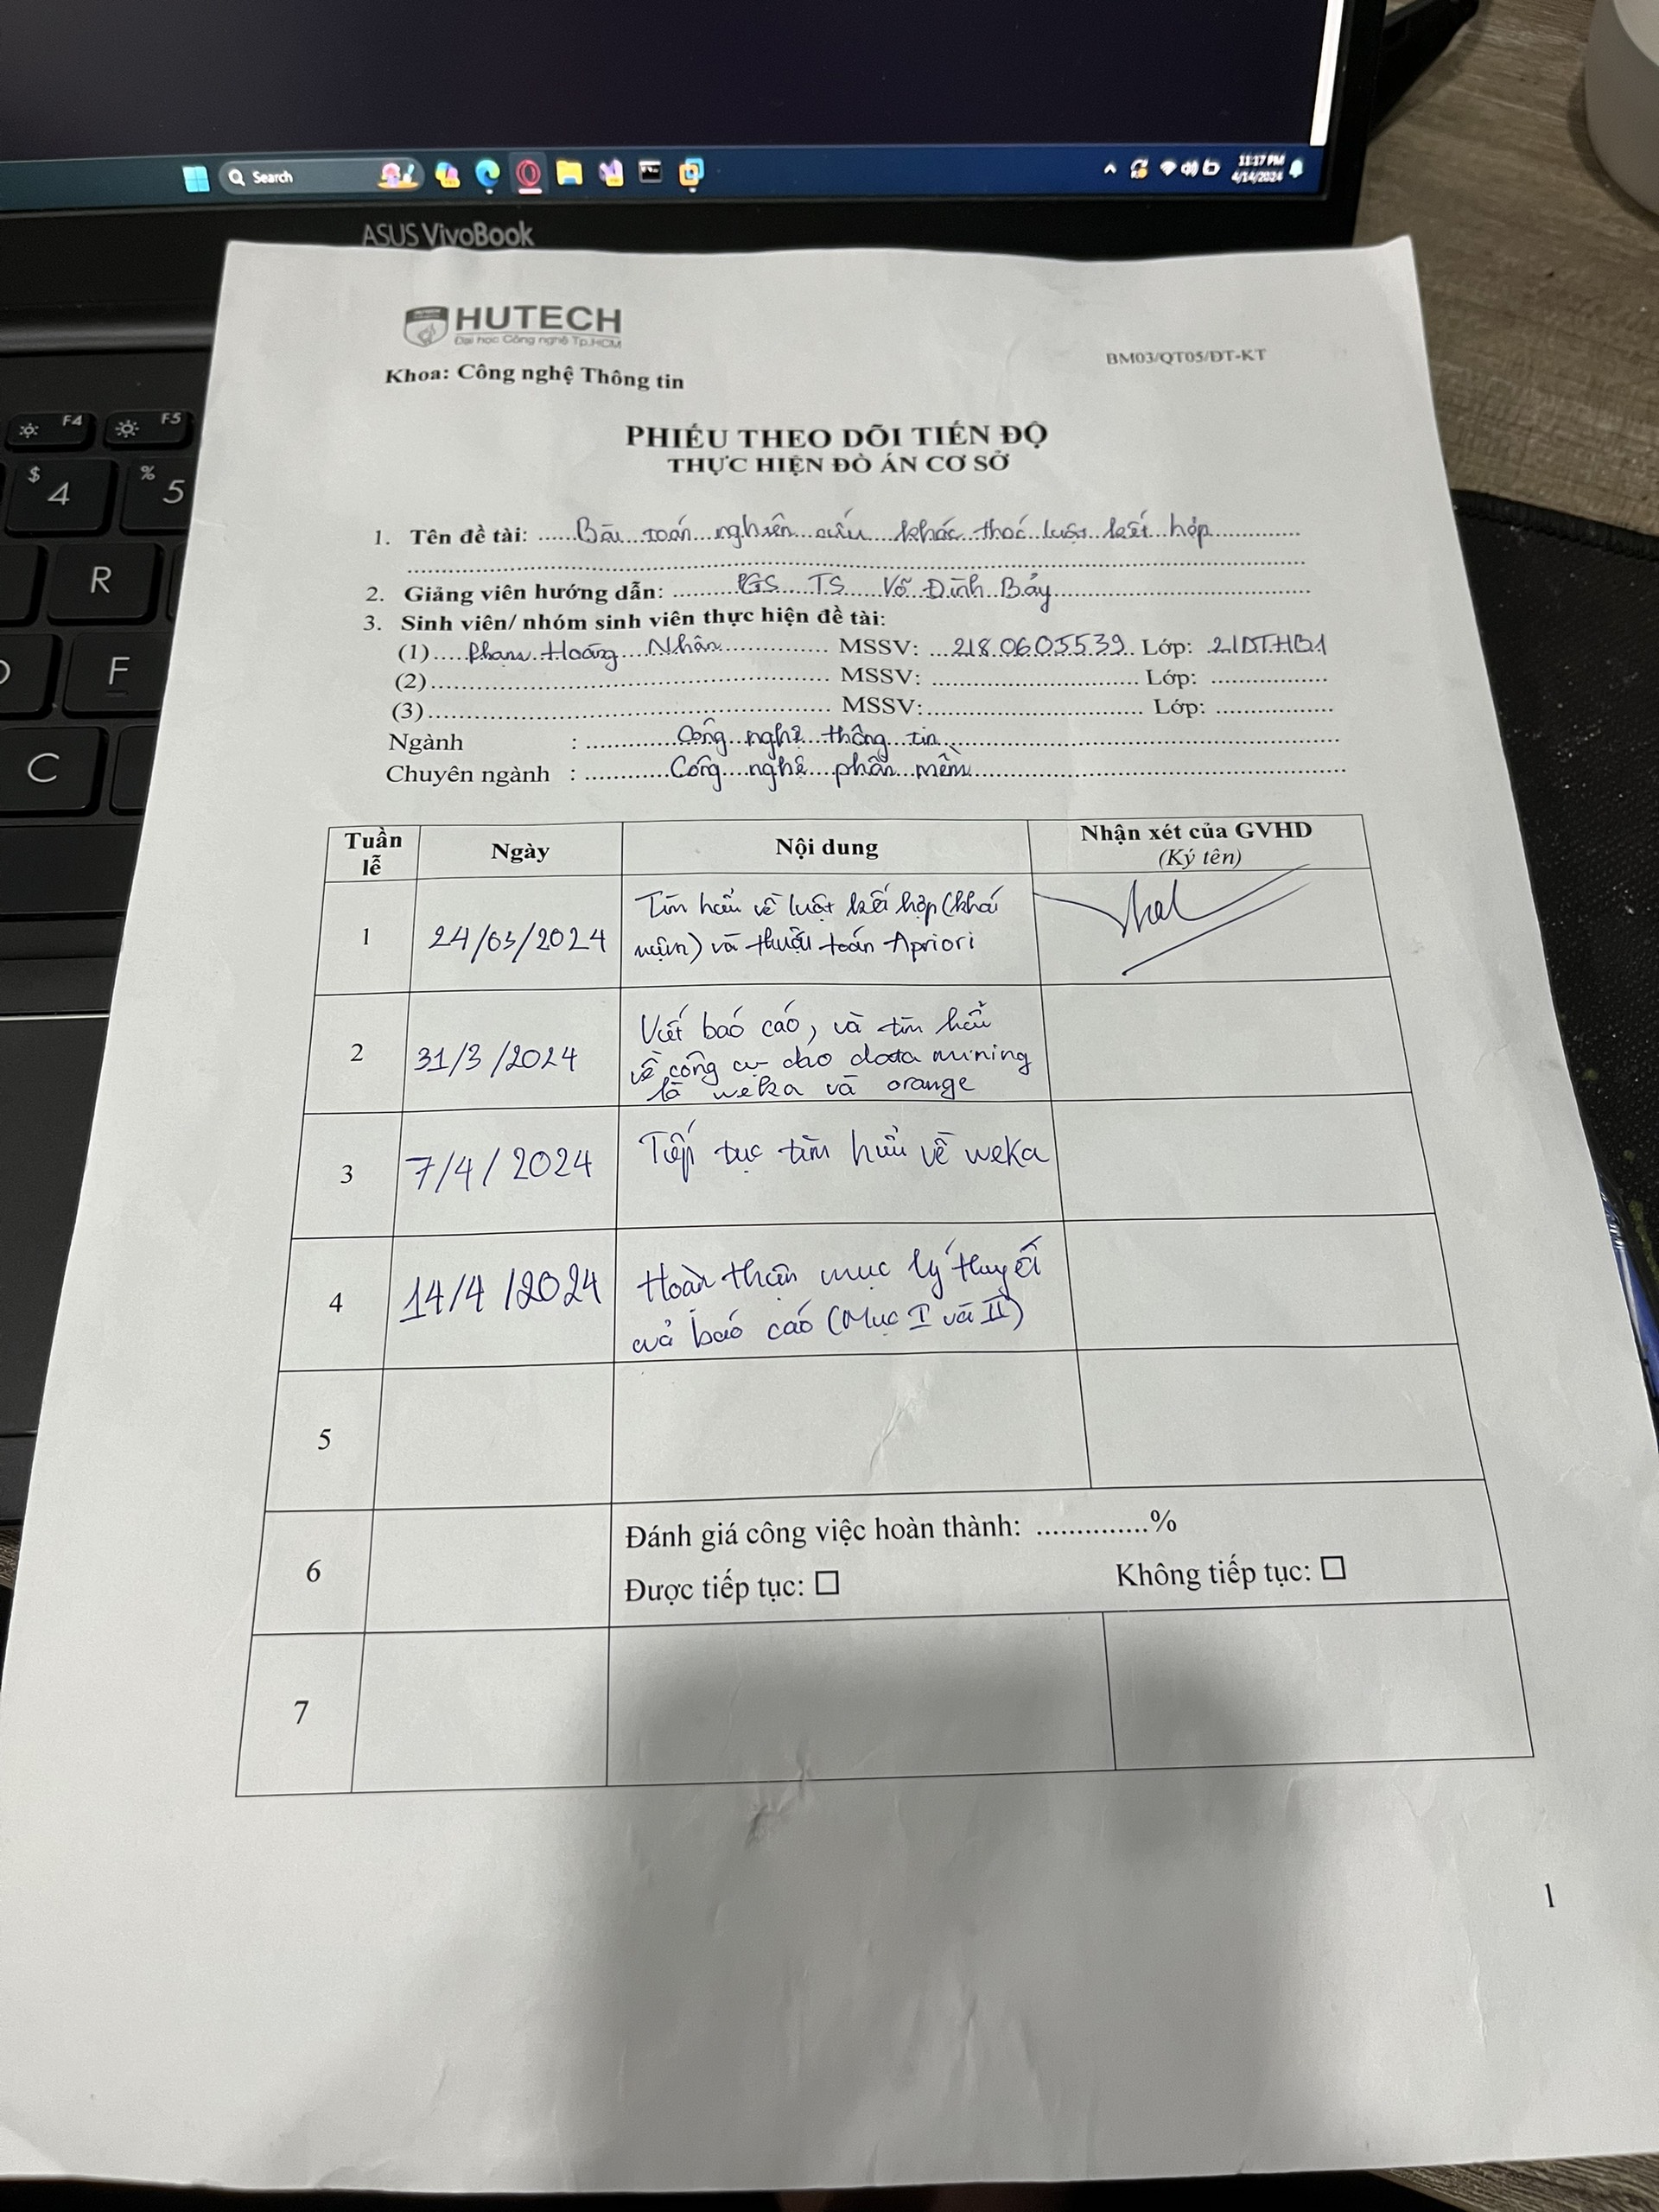 Search
11:17 PM
4/14/2024
ASUS VivoBook
F4
F5
$
4
%
5
R
F
C
HUTECH
Đại học Công nghệ Tp.HCM
BM03/QT05/ĐT-KT
Khoa: Công nghệ Thông tin
PHIẾU THEO DÕI TIẾN ĐỘ
THỰC HIỆN ĐỒ ÁN CƠ SỞ
1. Tên đề tài: Bài toán nghiên cứu khác thác luật kết hợp
2. Giảng viên hướng dẫn: PGS TS Võ Đình Bảy
3. Sinh viên/ nhóm sinh viên thực hiện đề tài:
(1) Phan Hoàng Nhân MSSV: 218 0605539 Lớp: 21DTHB1
(2) MSSV: Lớp:
(3) MSSV: Lớp:
Ngành : Công nghệ thông tin
Chuyên ngành : Công nghệ phần mềm
Tuần
lễ
Ngày
Nội dung
Nhận xét của GVHD
(Ký tên)
1
24/03/2024
Tìm hiểu về luật kết hợp (khái
niệm) và thuật toán Apriori
2
31/3/2024
Viết báo cáo, và tìm hiểu
về công cụ cho data mining
là weka và orange
3
7/4/2024
Tiếp tục tìm hiểu về weka
4
14/4/2024
Hoàn thiện mục lý thuyết
của báo cáo (Mục I và II)
5
6
Đánh giá công việc hoàn thành: ..............%
Được tiếp tục: ☐ Không tiếp tục: ☐
7
1